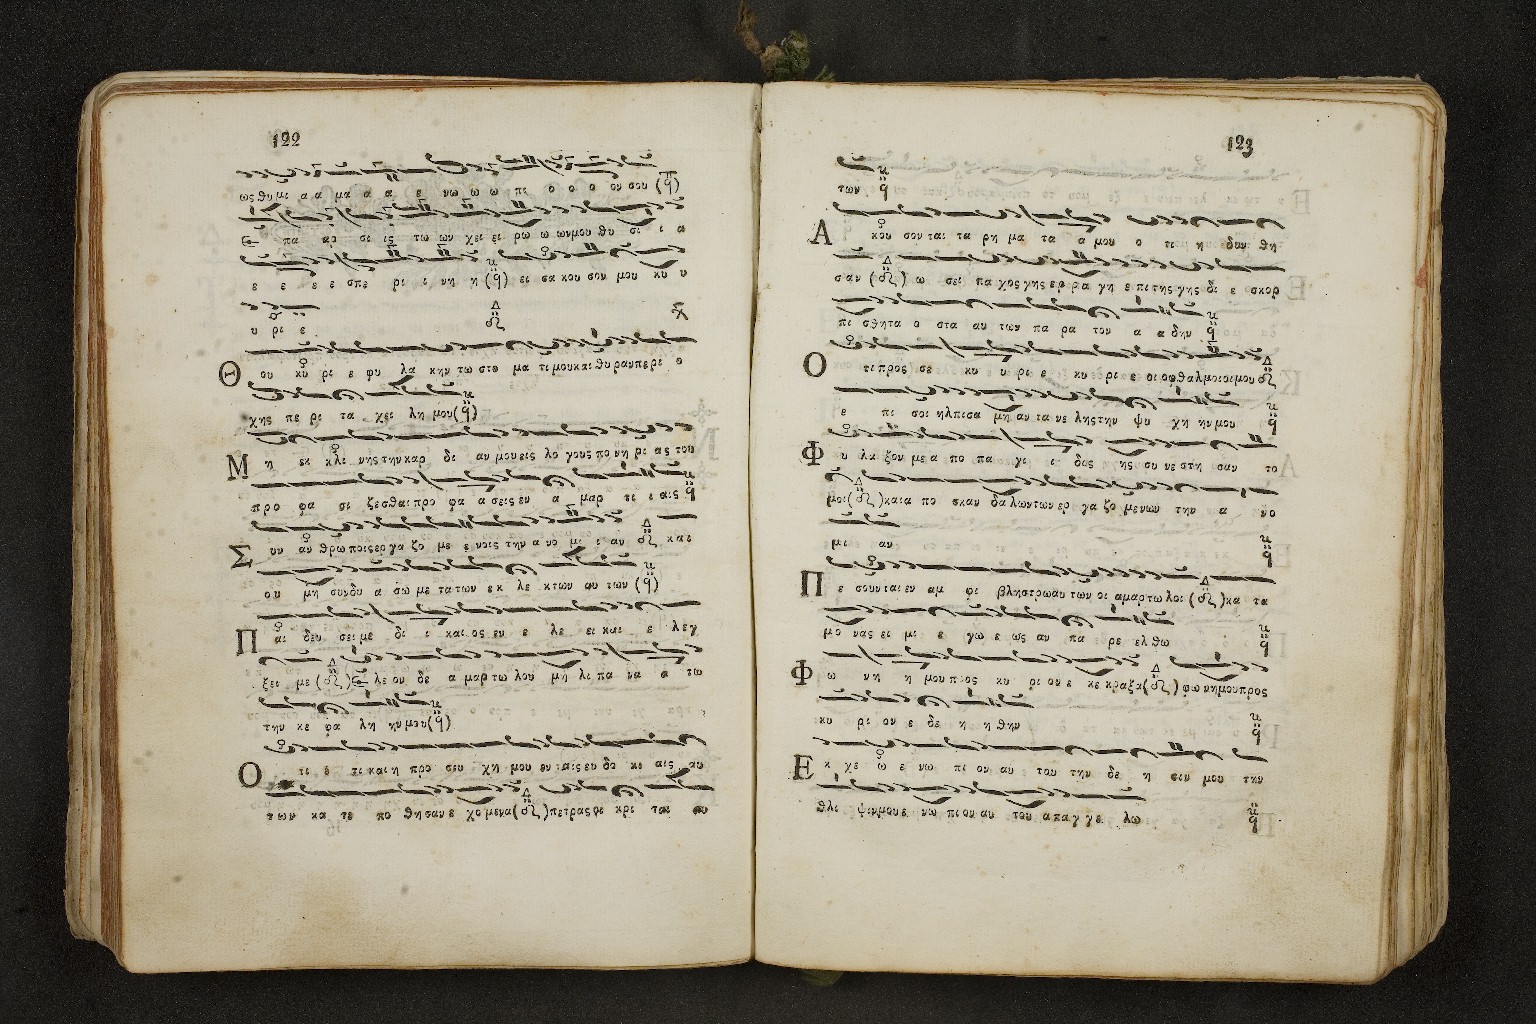 122
ως θυ μι α α μα α α ε νω ω ω πι ο ο ο ον σου (q)
ε πα αρ σι ις τω ων χει ει ρω ω ων μου θυ σι ι α
ε ε ε ε σπε ρι ι νη η (q) ει σα κου σον μου κυ υ
υ ρι ε
Θ ου κυ ρι ε φυ λα κην τω στο μα τι μου και θυ ραν πε ρι ο
χης πε ρι τα χει λη μου (q)
Μ η εκ κλι νης την καρ δι αν μου εις λο γους πο νη ρι ας του
προ φα σι ζεσθαι προ φα α σεις εν α μαρ τι ι αις q
Σ υν αν θρω ποις ερ γα ζο με ε νοις την α νο μι ι αν και
ου μη συνδυ α σω με τα των εκ λε κτων αυ των (q)
Π αι δευ σει με δι ι και ος εν ε λε ει και ε λεγ
ξει με ε λε ον δε α μαρ τω λου μη λι πα να α τω
την κε φα λη ην μου (q)
Ο τι ε τι και η προ σευ χη μου εν ταις ευ δο κι αις αυ
των κα τε πο θη σαν ε χο μενα πετρας οι κρι ται αυ
123
των q
Α κου σον ται τα ρη μα τα α μου ο τι η δυν θη
σαν ω σει πα χος γης ερ ρα γη ε πι της γης δι ε σκορ
πι σθη τα ο στα αυ των πα ρα τον α α δην q
Ο τι προς σε κυ υ ρι ε κυ ρι ε οι οφθαλμοι οι μου
ε πι σοι ηλπισα μη αν τα νε λης την ψυ χη ην μου q
Φ υ λα ξον με α πο πα γι ι δος ης συ νε στη σαν το
μοι και α πο σκαν δα λων των ερ γα ζο μενων την α νο
μι αν q
Π ε σουνται εν αμ φι βληστρω αυ των οι αμαρτω λοι κα τα
μο νας ει μι ε γω ε ως αν πα ρε ελ θω q
Φ ω νη η μου προς κυ ρι ον ε κε κραξα φω νη μου προς
κυ ρι ον ε δε η η θην q
Ε κ χε ω ε νω πι ον αυ του την δε η σιν μου την
θλι ψιν μου ε νω πι ον αυ του απαγ γε λω q